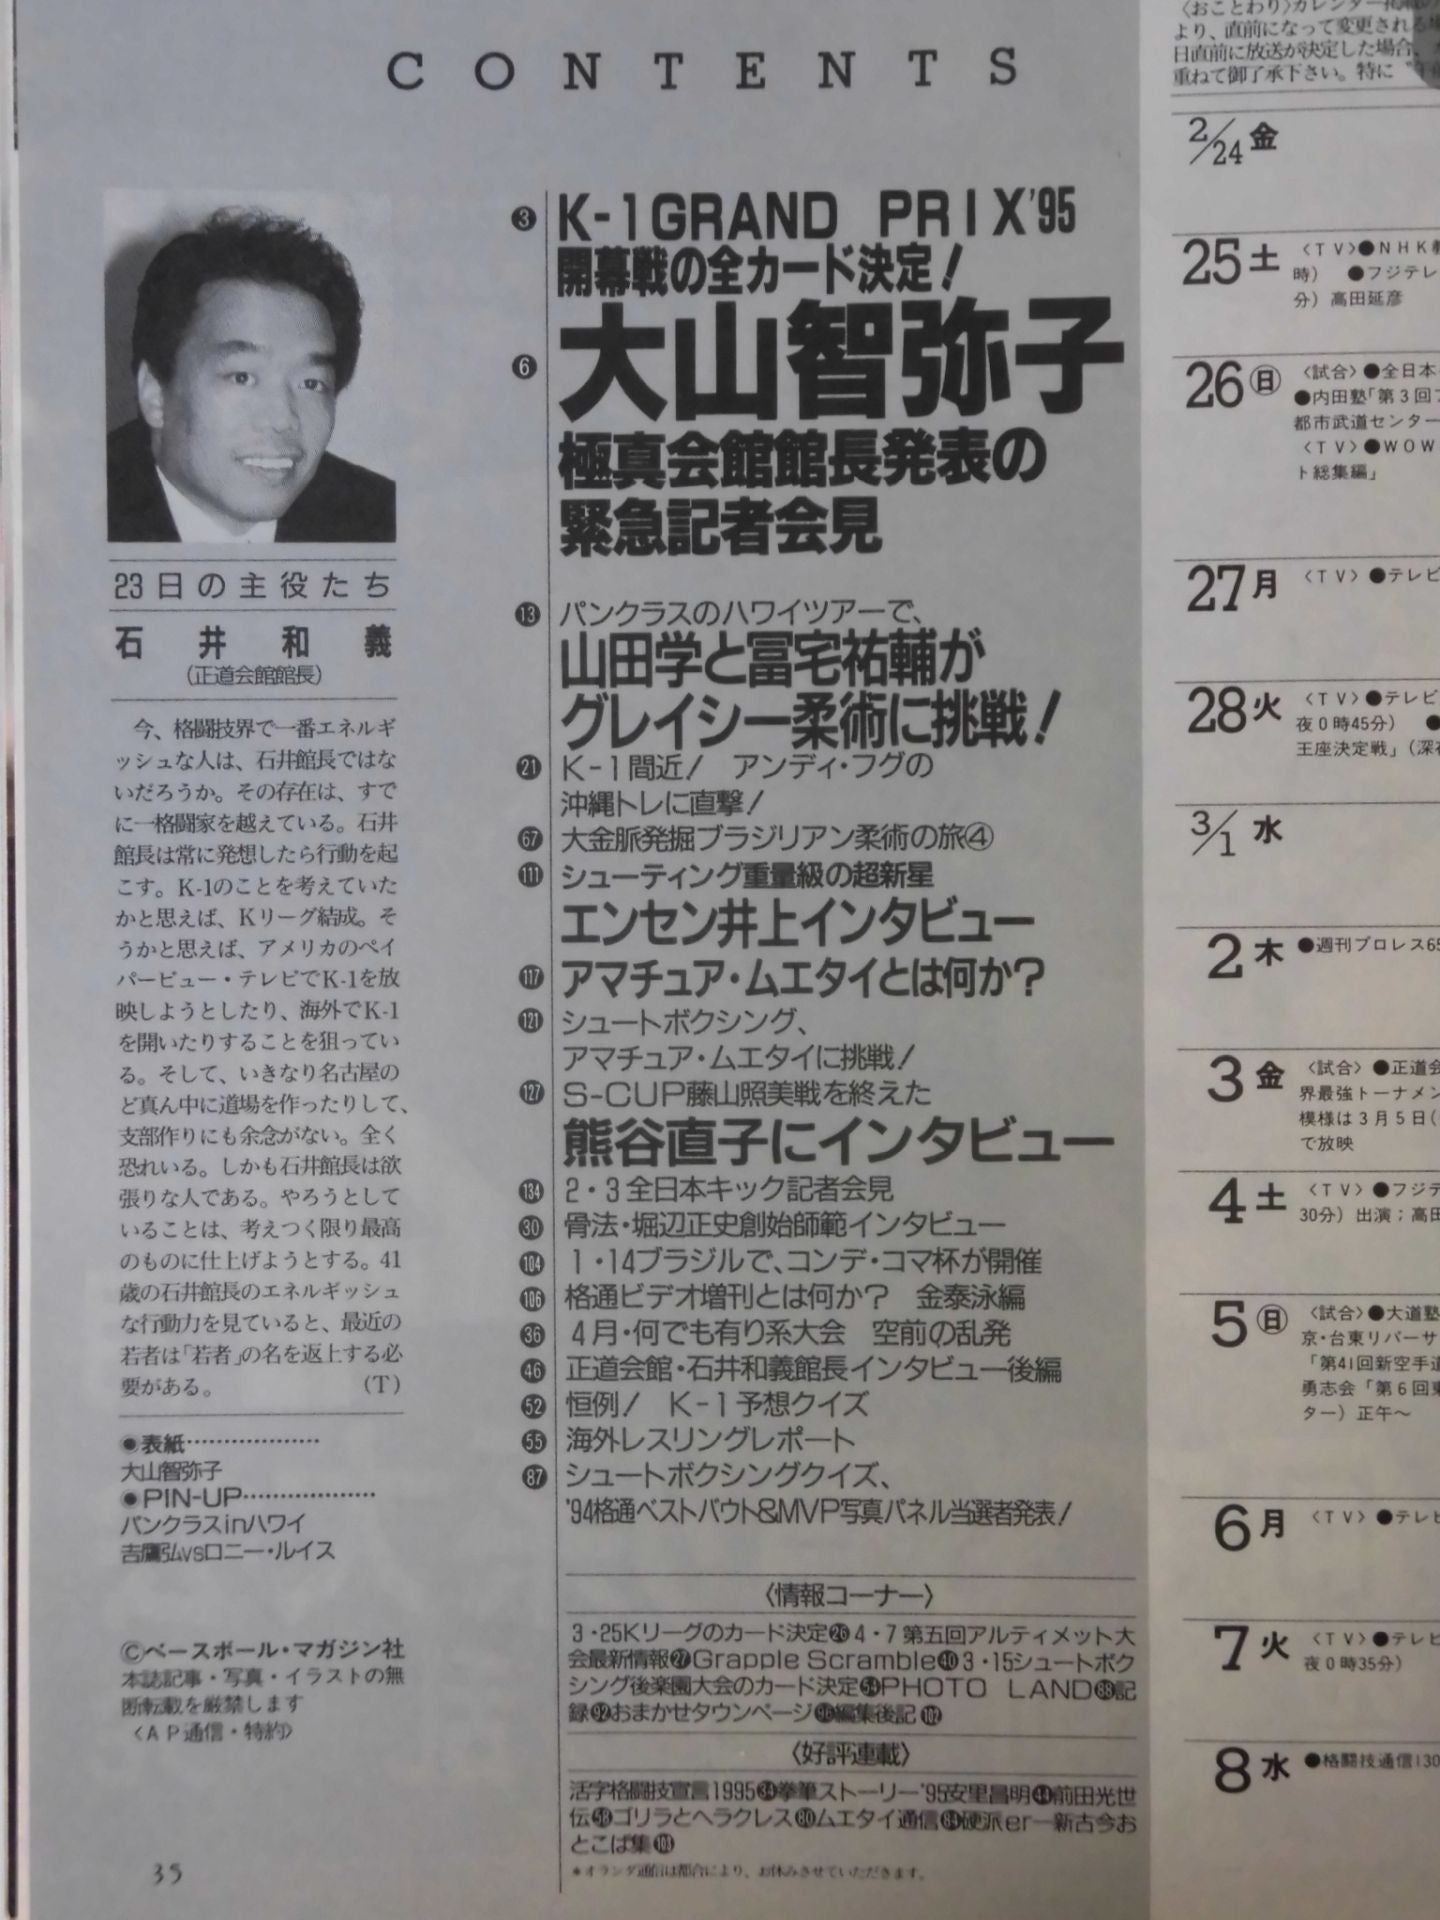 CONTENTS
23日の主役たち
石井和義
(正道会館館長)
今、格闘技界で一番エネルギ
ッシュな人は、石井館長ではな
いだろうか。その存在は、すで
に一格闘家を越えている。石井
館長は常に発想したら行動を起
こす。K-1のことを考えていた
かと思えば、Kリーグ結成。そ
うかと思えば、アメリカのペイ
パービュー・テレビでK-1を放
映しようとしたり、海外でK-1
を開いたりすることを狙ってい
る。そして、いきなり名古屋の
ど真ん中に道場を作ったりして、
支部作りにも余念がない。全く
恐れいる。しかも石井館長は欲
張りな人である。やろうとして
いることは、考えつく限り最高
のものに仕上げようとする。41
歳の石井館長のエネルギッシュ
な行動力を見ていると、最近の
若者は「若者」の名を返上する必
要がある。 (T)
●表紙………………
大山智弥子
●PIN-UP………………
パンクラスinハワイ
吉鷹弘vsロニー・ルイス
©ベースボール・マガジン社
本誌記事・写真・イラストの無
断転載を厳禁します
〈AP通信・特約〉
35
❸ K-1GRAND PRIX'95
開幕戦の全カード決定!
❻ 大山智弥子
極真会館館長発表の
緊急記者会見
⓭ パンクラスのハワイツアーで、
山田学と冨宅祐輔が
グレイシー柔術に挑戦!
21 K-1間近! アンディ・フグの
沖縄トレに直撃!
67 大金脈発掘ブラジリアン柔術の旅④
111 シューティング重量級の超新星
エンセン井上インタビュー
117 アマチュア・ムエタイとは何か?
121 シュートボクシング、
アマチュア・ムエタイに挑戦!
127 S-CUP藤山照美戦を終えた
熊谷直子にインタビュー
134 2・3全日本キック記者会見
30 骨法・堀辺正史創始師範インタビュー
104 1・14ブラジルで、コンデ・コマ杯が開催
106 格通ビデオ増刊とは何か? 金泰泳編
36 4月・何でも有り系大会 空前の乱発
46 正道会館・石井和義館長インタビュー後編
52 恒例! K-1予想クイズ
55 海外レスリングレポート
87 シュートボクシングクイズ、
'94格通ベストバウト&MVP写真パネル当選者発表!
〈情報コーナー〉
3・25Kリーグのカード決定26 4・7第五回アルティメット大
会最新情報27Grapple Scramble40 3・15シュートボク
シング後楽園大会のカード決定54PHOTO LAND88記
録92おまかせタウンページ96編集後記102
〈好評連載〉
活字格闘技宣言1995 34拳筆ストーリー'95安里昌明44前田光世
伝58ゴリラとヘラクレス80ムエタイ通信84硬派er—新古今お
とこば集103
*オランダ通信は都合により、お休みさせていただきます。
〈おことわり〉カレンダー
より、直前になって変更される
日直前に放送が決定した場合、
重ねて御了承下さい。特に
2/24金
25土 〈TV〉●NHK
時) ●フジテレ
分) 高田延彦
26㊐ 〈試合〉●全日本
●内田塾「第3回
都市武道センター
〈TV〉●WOW
ト総集編」
27月 〈TV〉●テレビ
28火 〈TV〉●テレビ
夜0時45分) ●
王座決定戦」(深
3/1水
2木 ●週刊プロレス65
3金 〈試合〉●正道会
界最強トーナメン
模様は3月5日(
で放映
4土 〈TV〉●フジテ
30分) 出演;高田
5㊐ 〈試合〉●大道塾
京・台東リバーサ
「第41回新空手道
勇志会「第6回東
ター) 正午〜
6月 〈TV〉●テレビ
7火 〈TV〉●テレビ
夜0時35分)
8水 ●格闘技通信130